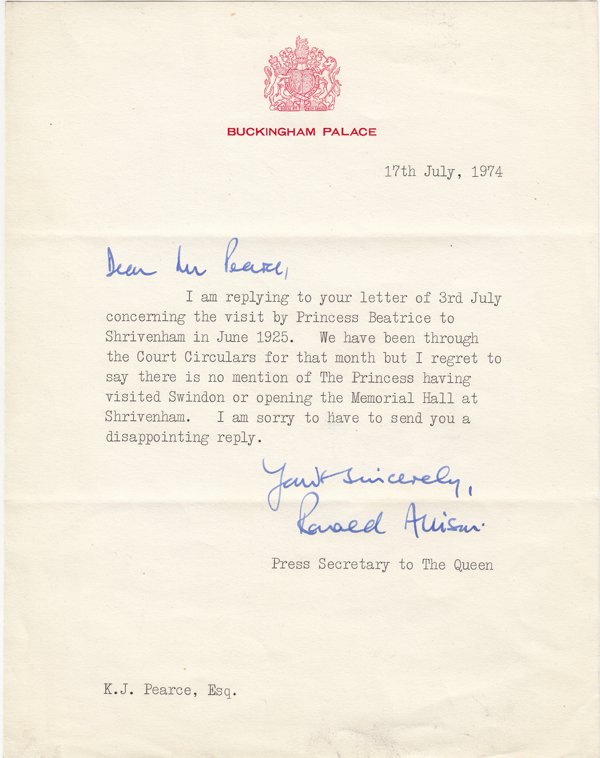 BUCKINGHAM PALACE
17th July, 1974
Dear Mr Pearce,
I am replying to your letter of 3rd July
concerning the visit by Princess Beatrice to
Shrivenham in June 1925. We have been through
the Court Circulars for that month but I regret to
say there is no mention of The Princess having
visited Swindon or opening the Memorial Hall at
Shrivenham. I am sorry to have to send you a
disappointing reply.
Yours sincerely,
Ronald Allison.
Press Secretary to The Queen
K.J. Pearce, Esq.